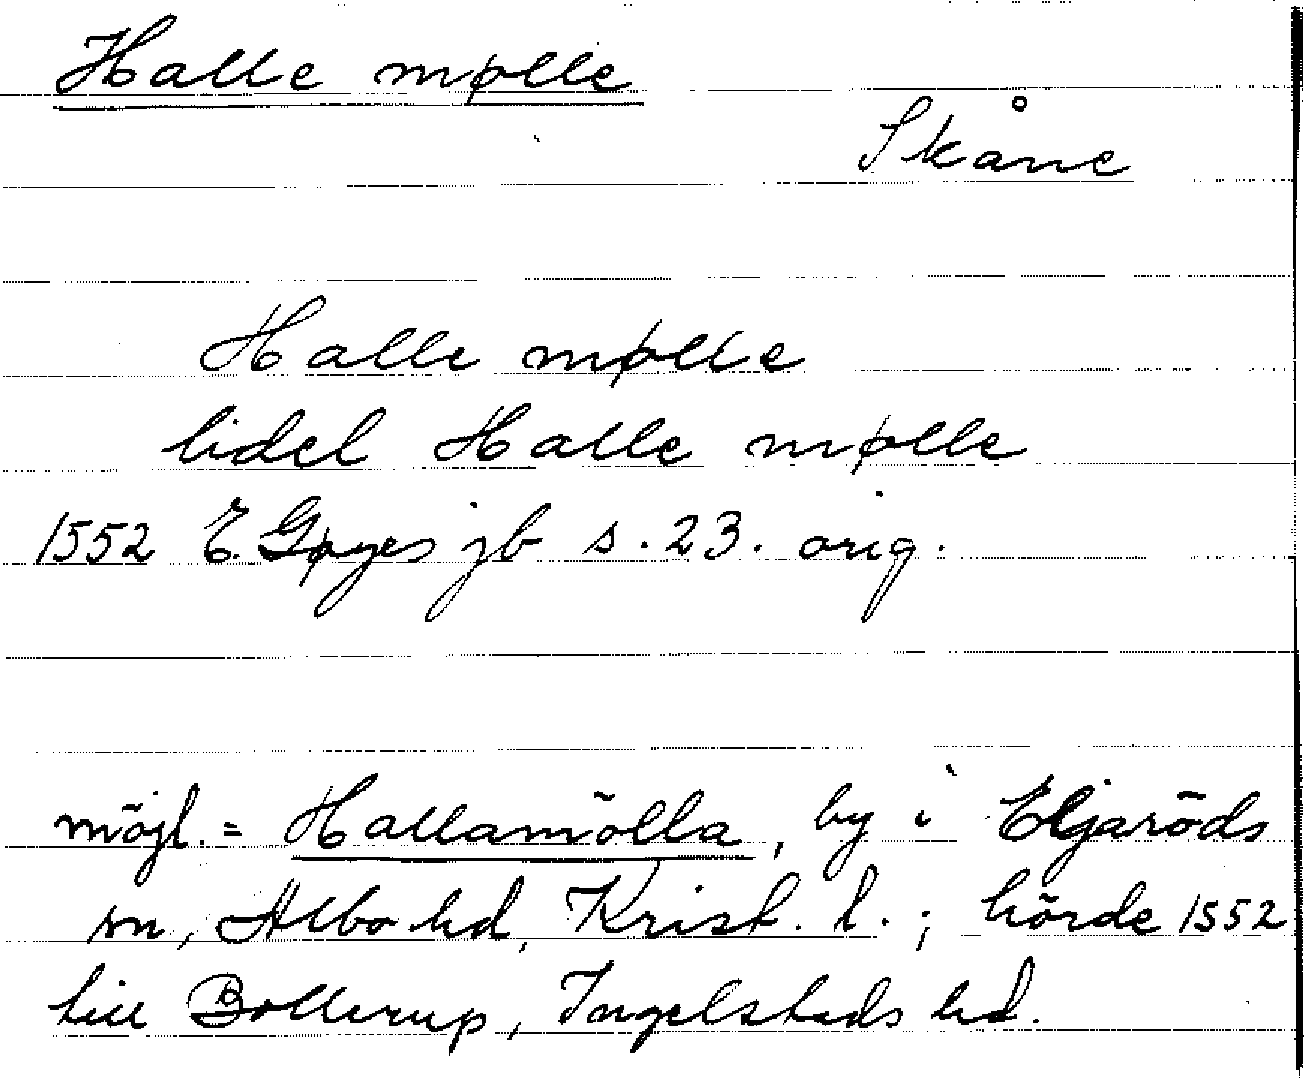 Halle mølle
Skåne
Halle mølle
lidel Halle mølle
1552 E. Gøyes jb s. 23. orig.
möjl. = Hallamölla, by i Eljaröds
sn, Albo hd, Krist. l.; hörde 1552
till Bollerup, Ingelstads hd.